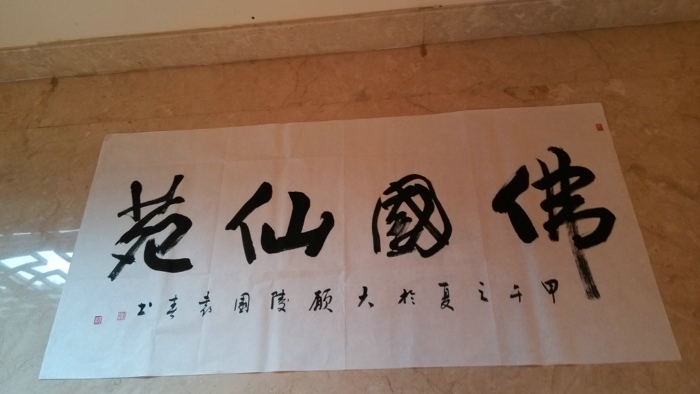 佛國仙苑
甲午之夏於大願陵園袁春书